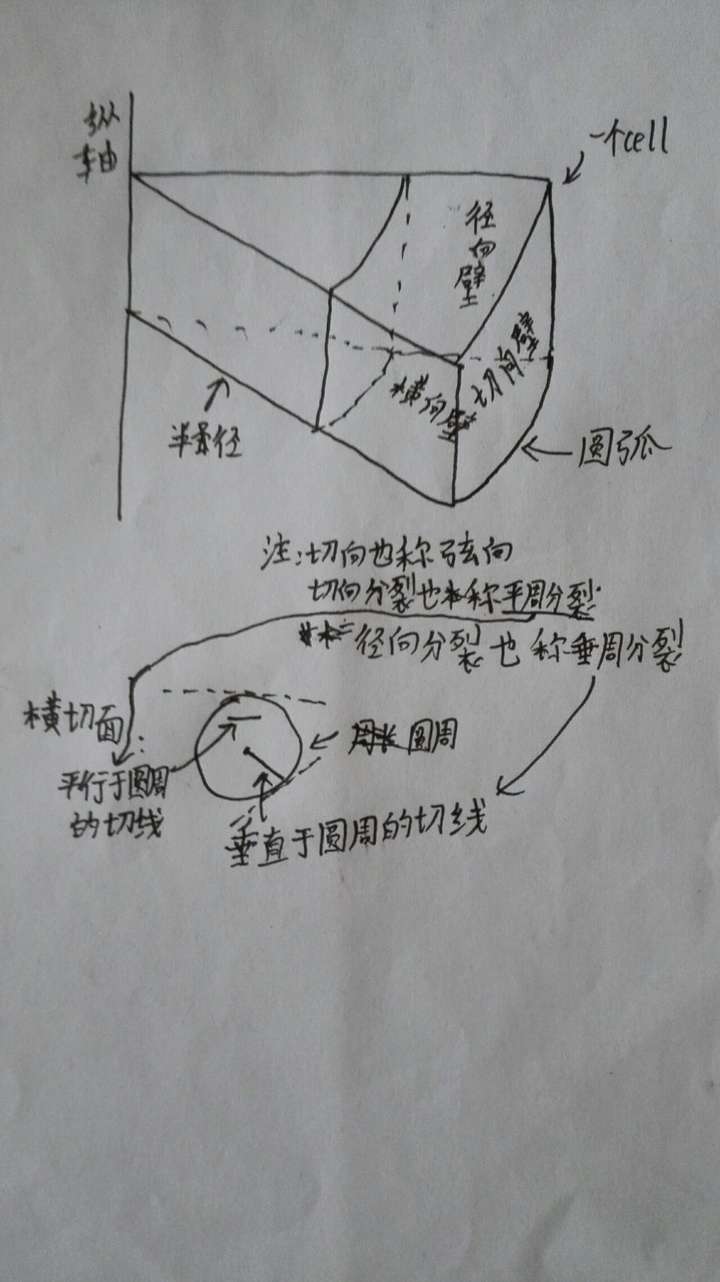 纵
轴
一个cell
径向壁
切向壁
横向壁
半径
圆弧
注:切向也称弦向
切向分裂也称平周分裂
径向分裂也称垂周分裂
横切面:
圆周
平行于圆周
的切线
垂直于圆周的切线